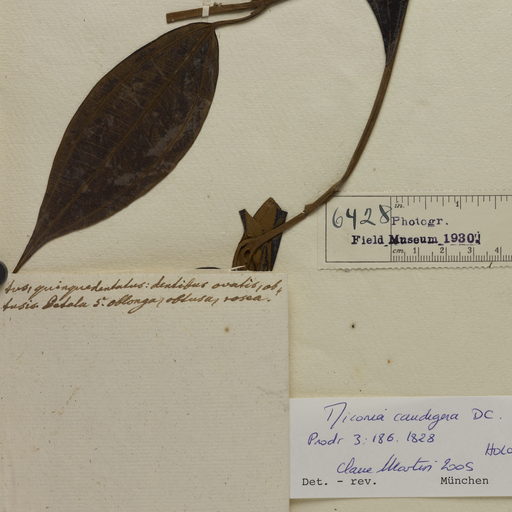 6428 Photogr.
Field Museum 1930
in. 1
cm. 1 2 3 4
tus, quinquedentatus: dentibus ovatis, ob,
tusis. Petala 5. oblonga, obtusa, rosea.
Miconia caudigera DC.
Prodr 3: 186. 1828
Holo
Martin 2005
Det. - rev. München